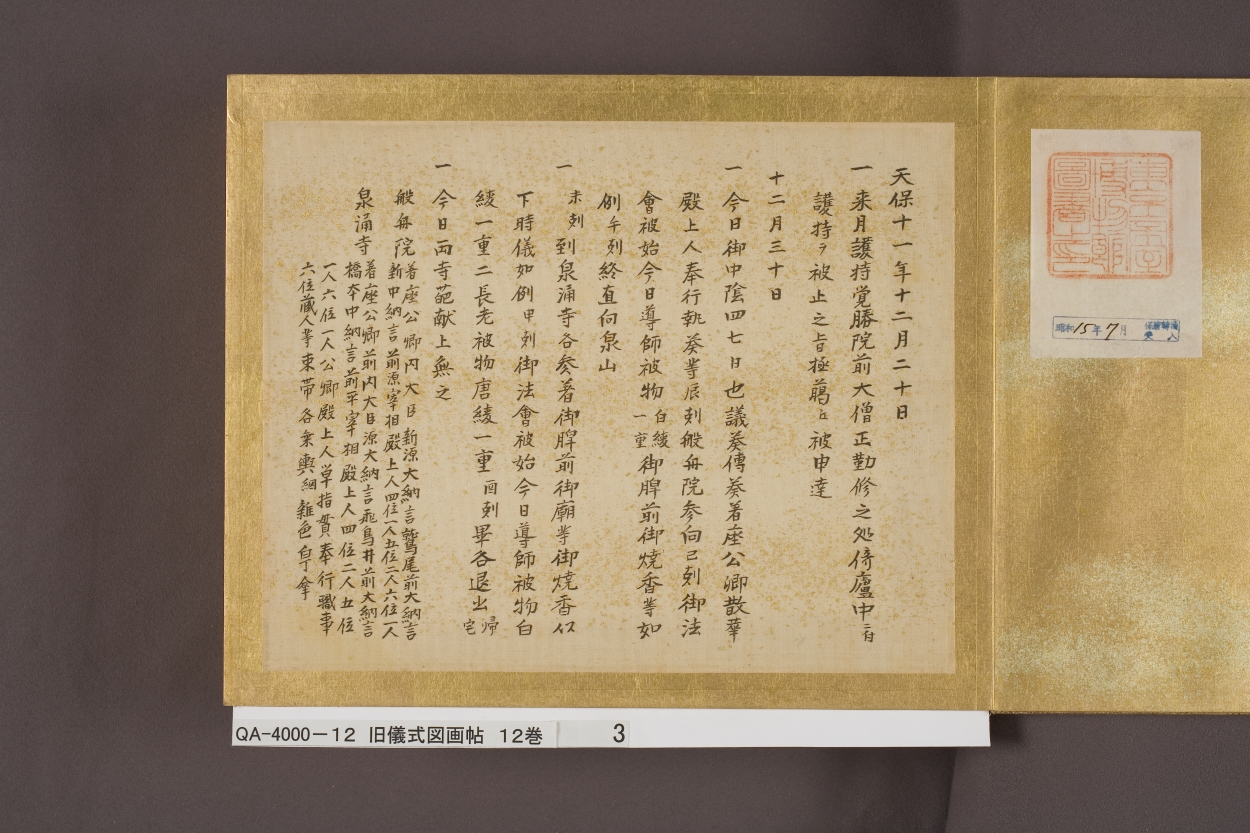 天保十一年十二月二十日
一 来月護持覚勝院前大僧正勤修之処倚廬中ニ付
護持ヲ被止之旨極﨟ゟ被申達
十二月三十日
一 今日御中陰四七日也議奏傳奏着座公卿散華
殿上人奉行執奏等辰刻般舟院参向已刻御法
會被始今日導師被物白綾一重御牌前御焼香等如
例午刻終直向泉山
一 未刻到泉涌寺各参着御牌前御廟等御焼香似
下時儀如例申刻御法會被始今日導師被物白
綾一重二長老被物唐綾一重酉刻畢各退出帰宅
一 今日両寺葩献上無之
般舟院 着座公卿内大臣新源大納言鷲尾前大納言
新中納言前源宰相殿上人四位一人五位二人六位一人
泉涌寺 着座公卿前内大臣源大納言飛鳥井前大納言
橋本中納言前平宰相殿上人四位二人五位
一人六位一人公卿殿上人草指貫奉行職事
六位蔵人等束帯各乗輿網雑色白丁傘
東京帝室博物館圖書之印
昭和15年7月
QA-4000-12 旧儀式図画帖 12巻 3